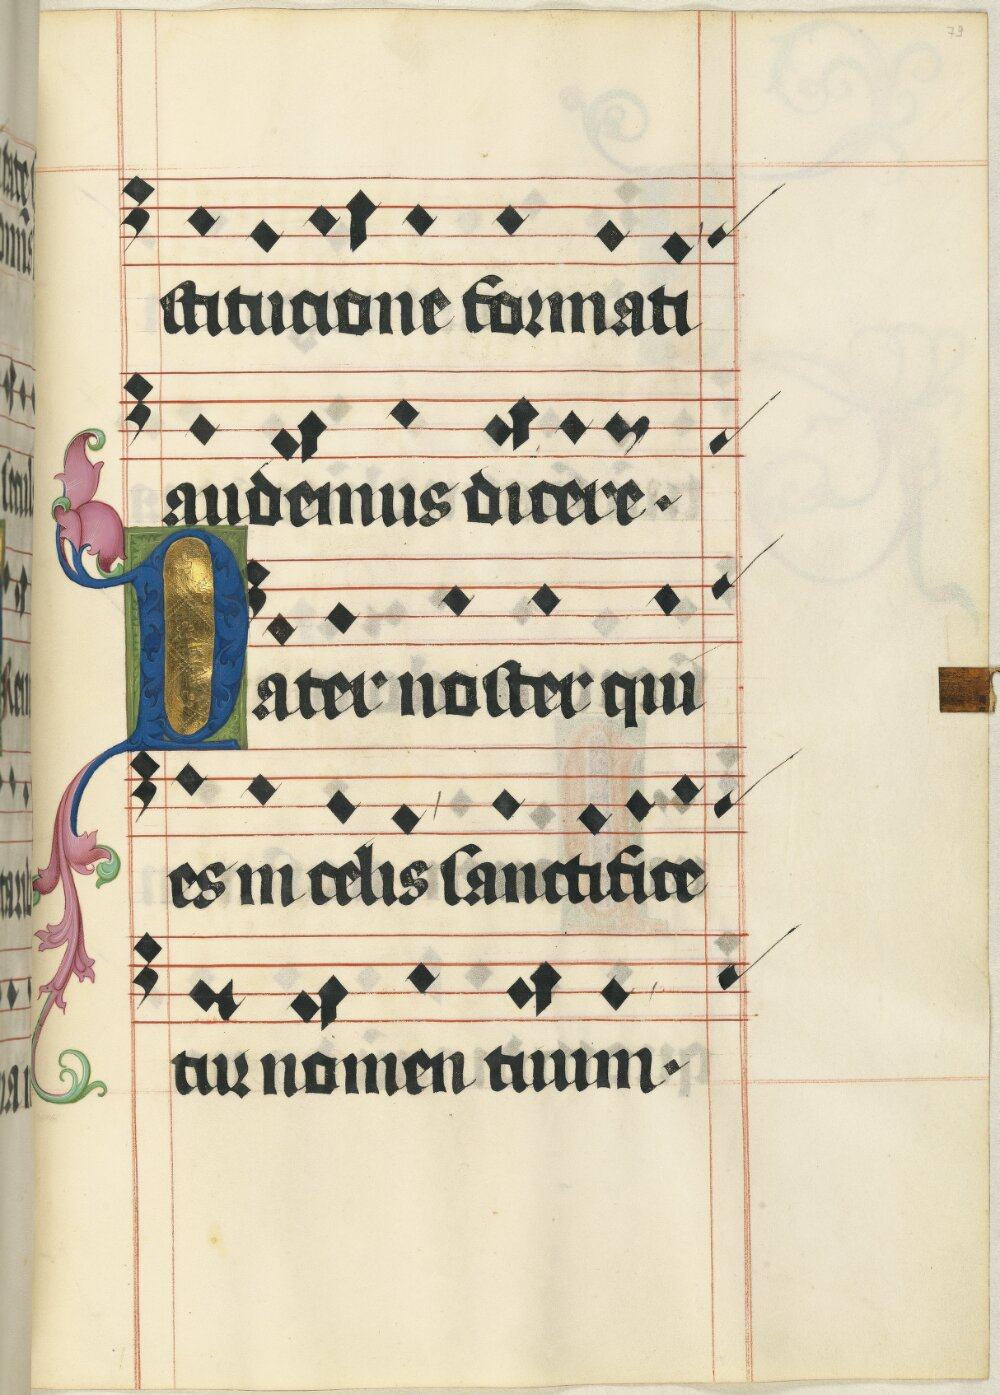 79
stitucione formati
audemus dicere·
Pater noster qui
es in celis sanctifice
tur nomen tuum·